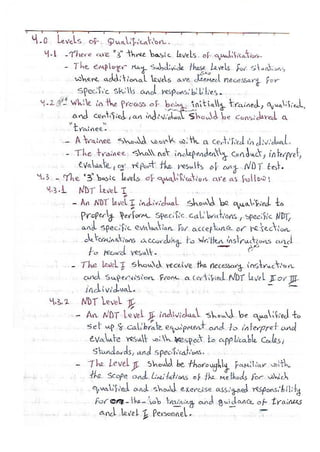 4.0 Levels of Qualification.
4.1 - There are "3" three basic levels of qualification.
- The employer may subdivide these levels for situations
where additional levels are deemed necessary for
specific skills and responsibilities.
4.2 While in the process of being initially trained, qualified,
and certified, an individual should be considered a
"trainee".
- A trainee should work with a certified individual.
- The trainee shall not independently conduct, interpret,
evaluate, or report the results of any NDT test.
4.3 - The "3" basic levels of qualification are as follow:
4.3.1 NDT Level I
- An NDT level I individual should be qualified to
properly perform specific calibrations, specific NDT,
and specific evaluation for acceptance or rejection
determinations according to written instructions and
to record result.
- The level I should receive the necessary instruction
and supervision from a certified NDT level II or III
individual.
4.3.2 NDT Level II
- An NDT level II individual should be qualified to
set up & calibrate equipment and to interpret and
evaluate result with respect to applicable codes,
standards, and specifications.
- The level II should be thoroughly familiar with
the scope and limitations of the methods for which
qualified and should exercise assigned responsibility
for on-the-job training and guidance of trainees
and level I personnel.